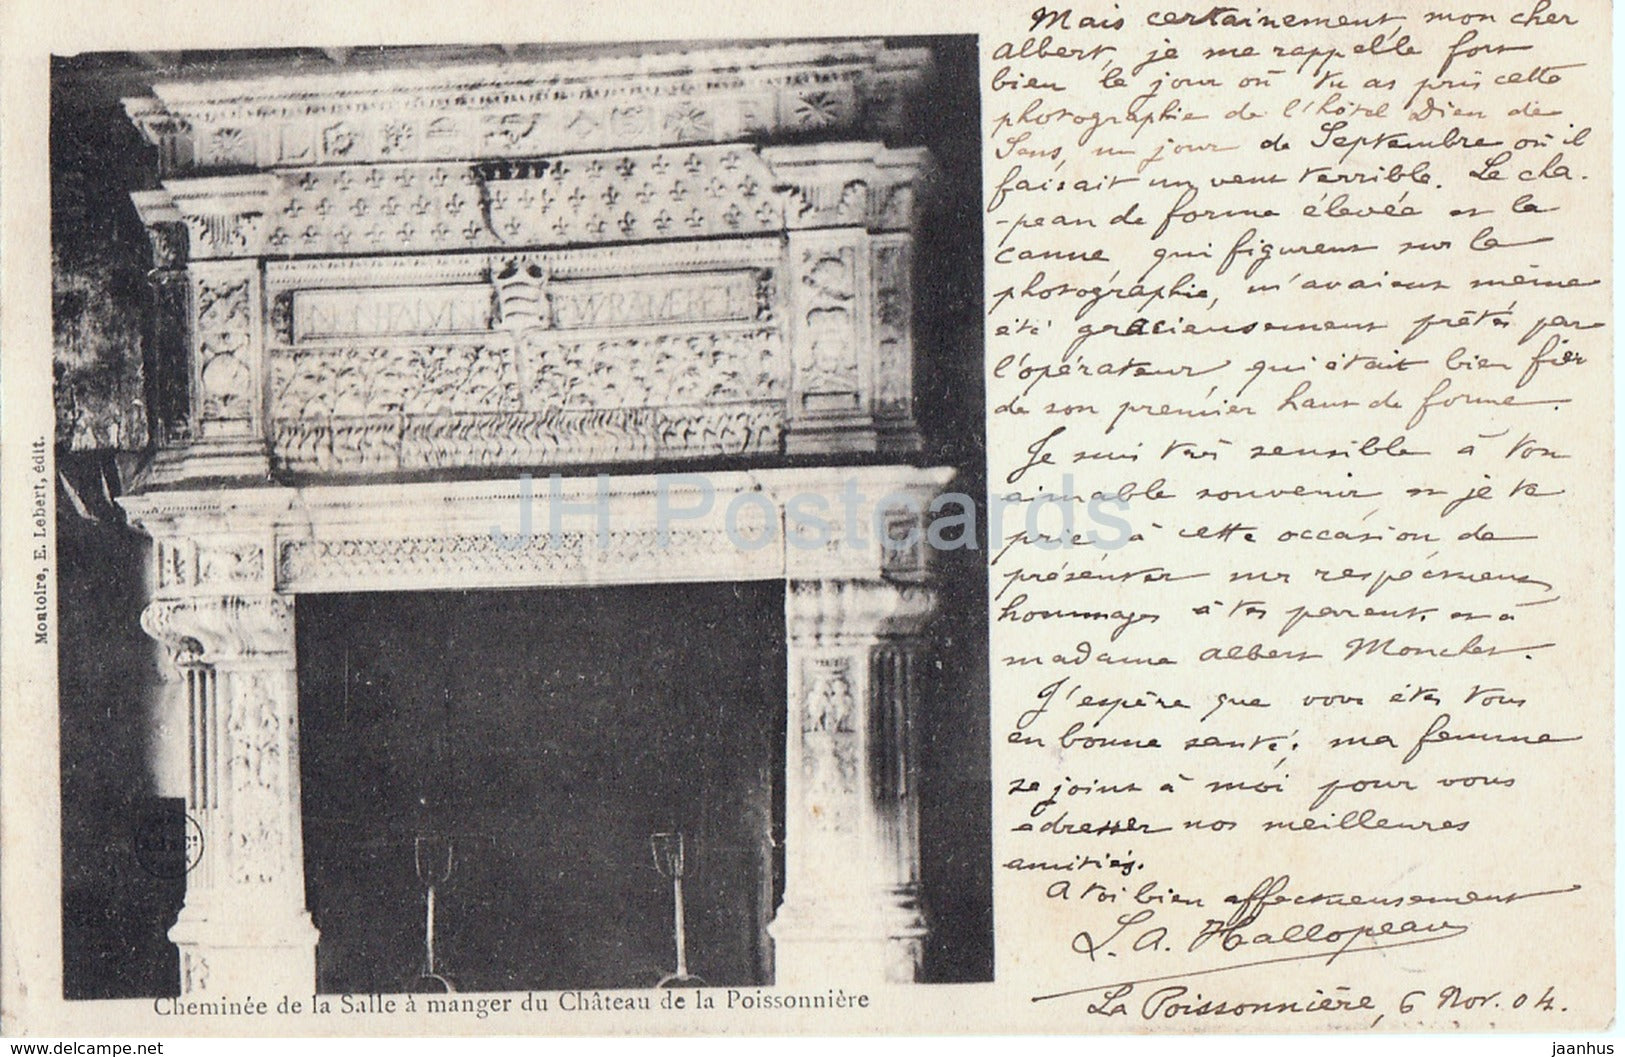 Mais certainement, mon cher
Albert, je me rappelle fort
bien le jour où tu as pris cette
photographie de l'hôtel Dieu de
Sens, un jour de Septembre où il
faisait un vent terrible. Le cha-
-peau de forme élevée et la
canne qui figurent sur la
photographie, m'avaient même
été gracieusement prêtés par
l'opérateur, qui était bien fier
de son premier haut de forme.
Je suis très sensible à ton
aimable souvenir et je te
prie à cette occasion de
présenter mes respectueux
hommages à tes parents et à
madame Albert Monchet.
J'espère que vous êtes tous
en bonne santé; ma femme
se joint à moi pour vous
adresser nos meilleures
amitiés.
A toi bien affectueusement
L. A. Hallopeau
La Poissonnière, 6 Nov. 04.
Montoire, E. Lebert, édit.
Cheminée de la Salle à manger du Château de la Poissonnière
JH Postcards
www.delcampe.net
jaanhus